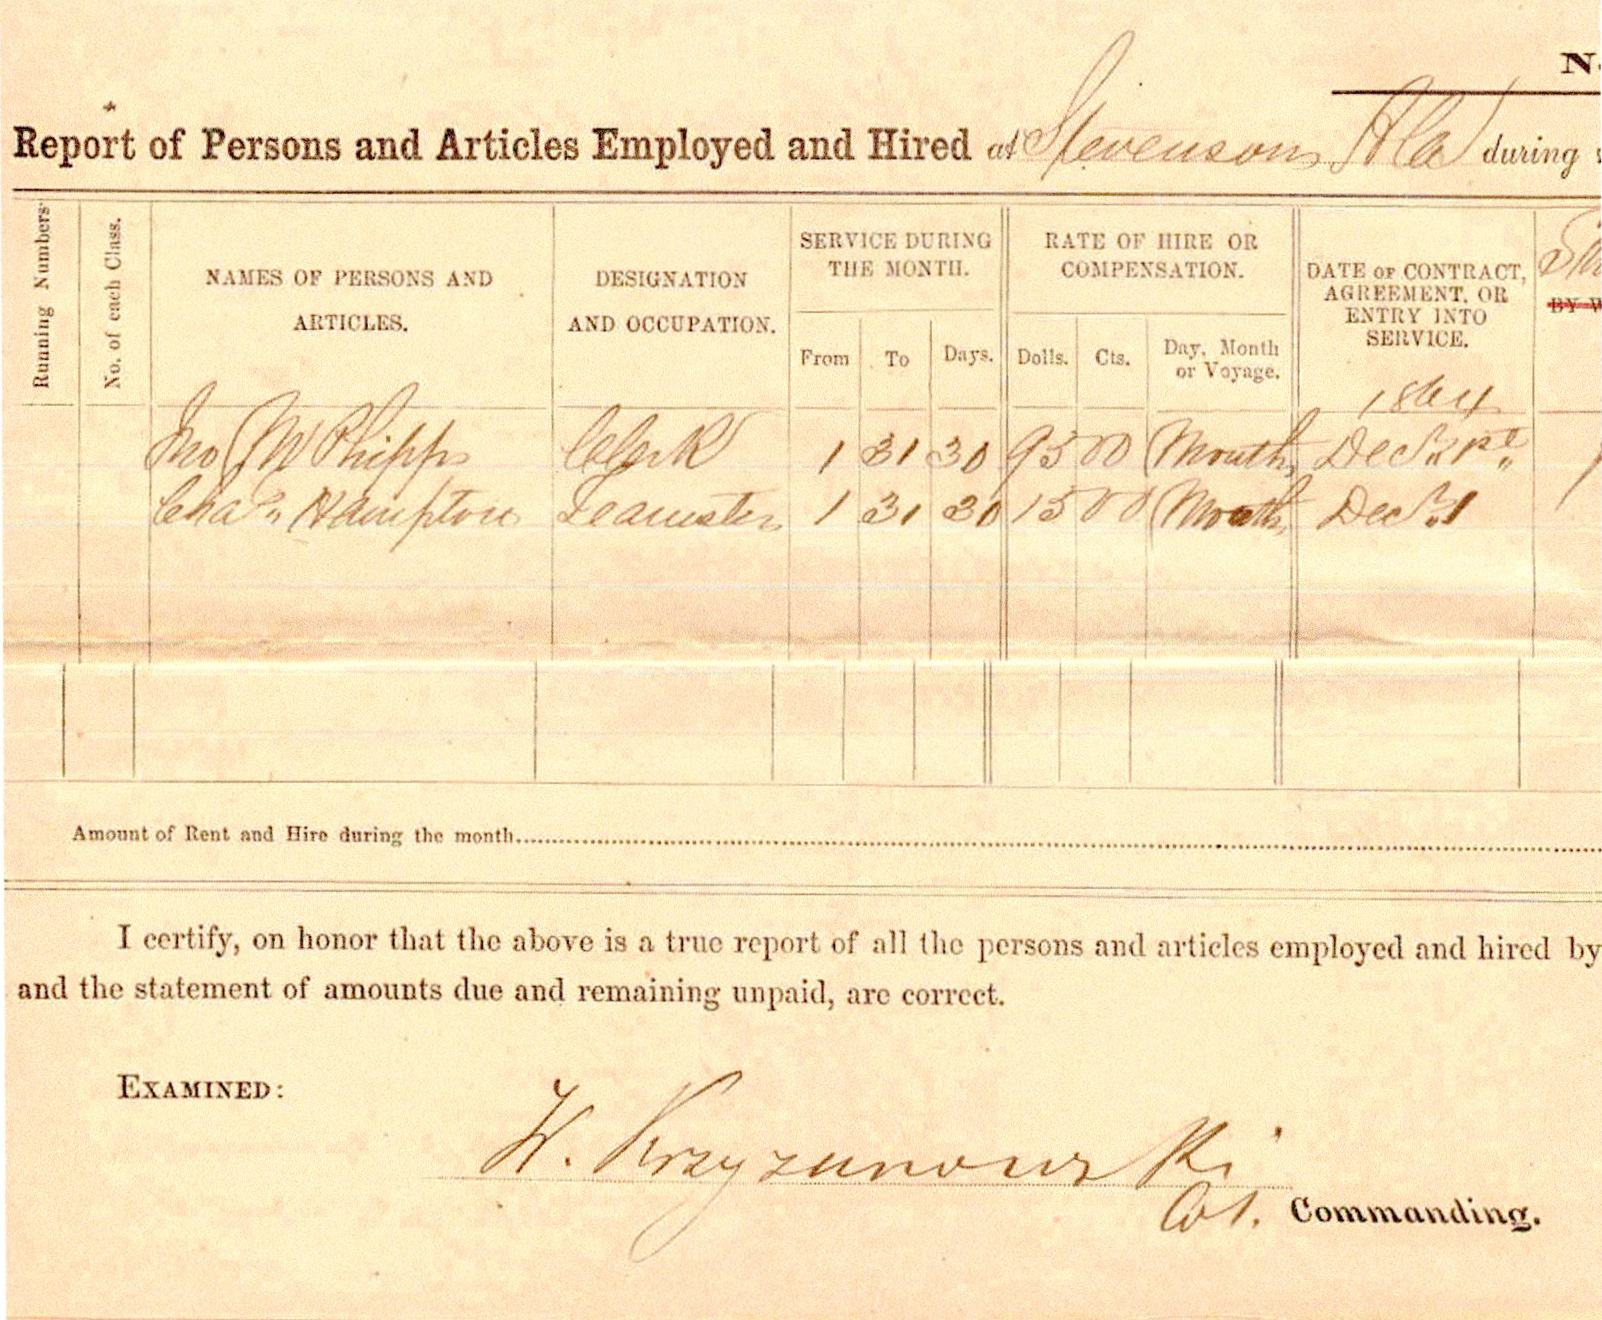 N
Report of Persons and Articles Employed and Hired at Stevenson Ala during
Running Numbers.
No. of each Class.
NAMES OF PERSONS AND
ARTICLES.
DESIGNATION
AND OCCUPATION.
SERVICE DURING
THE MONTH.
From To Days.
RATE OF HIRE OR
COMPENSATION.
Dolls. Cts. Day, Month
or Voyage.
DATE OF CONTRACT,
AGREEMENT, OR
ENTRY INTO
SERVICE.
BY W
1864
Jno M Phipps Clerk 1 31 30 95 00 Month Dec. 1st
Chas. Hampton Teamster 1 31 30 15 00 Month Dec. 1
Amount of Rent and Hire during the month
I certify, on honor that the above is a true report of all the persons and articles employed and hired by
and the statement of amounts due and remaining unpaid, are correct.
EXAMINED:
W. Krzyzanowski
Col. Commanding.